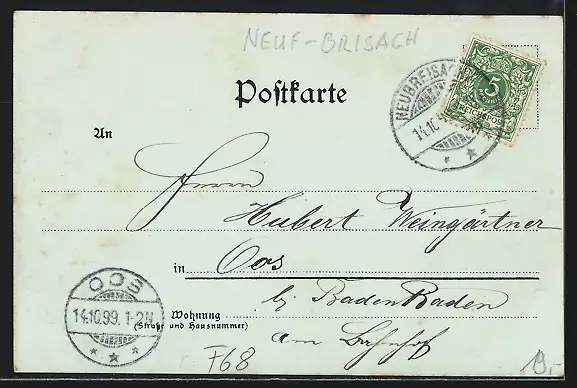 NEUF-BRISACH
Postkarte
NEUBREISACH
14.10.
5
REICHSPOST
An
Herrn
Hubert Weingärtner
in Oos
OOS
14.10.99. 1-2N
bei Baden Baden
Wohnung
(Straße und Hausnummer)
am Bahnhof
F68
19.-